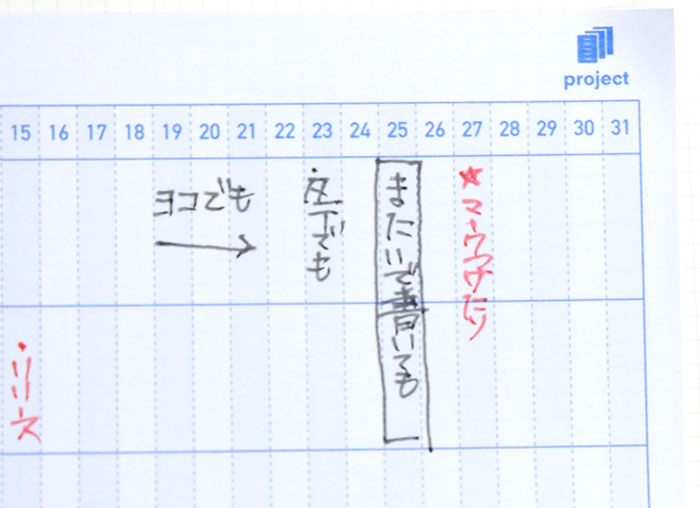 project
15 16 17 18 19 20 21 22 23 24 25 26 27 28 29 30 31
ヨコでも
でも
またいで書いても
★マークつけたり
・リリース